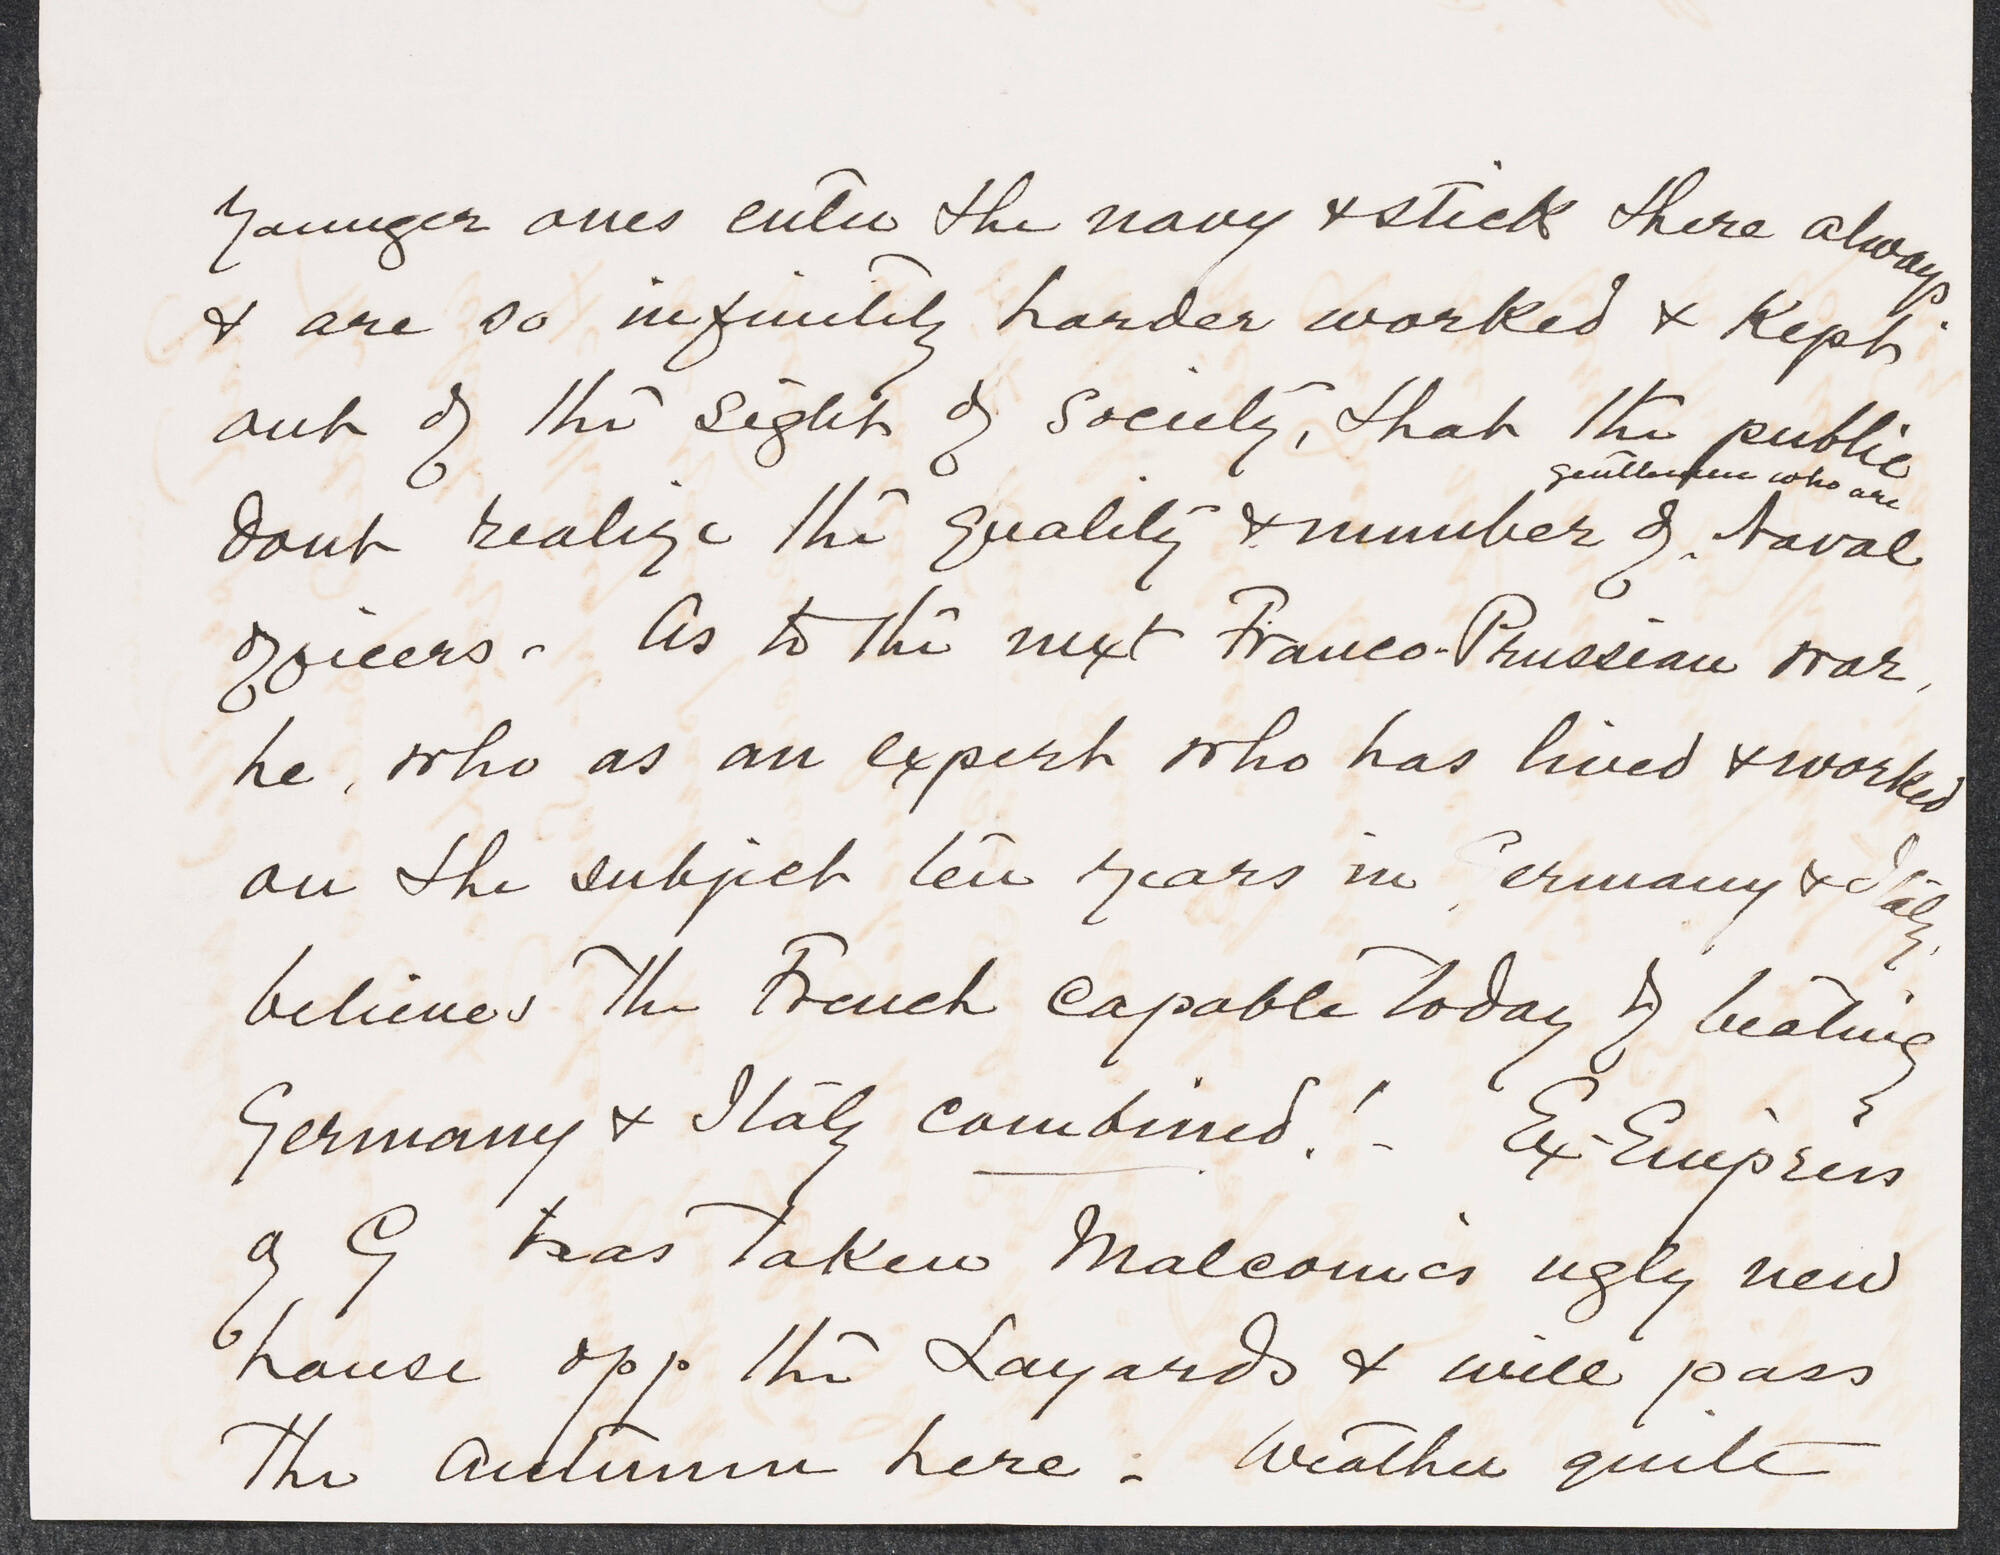 younger ones enter the navy & stick there always
& are so infinitely harder worked & kept
out of the sight of society, that the public
gentlemen who are
dont realize the quality & number of Naval
officers - As to the next Franco-Prussian war,
he, who as an expert who has lived & worked
on the subject ten years in Germany & Italy,
believes the French capable today of beating
Germany & Italy combined! - Ex-Empress
of G has taken Malcom's ugly new
house opp the Layards & will pass
the autumn here - Weather quite